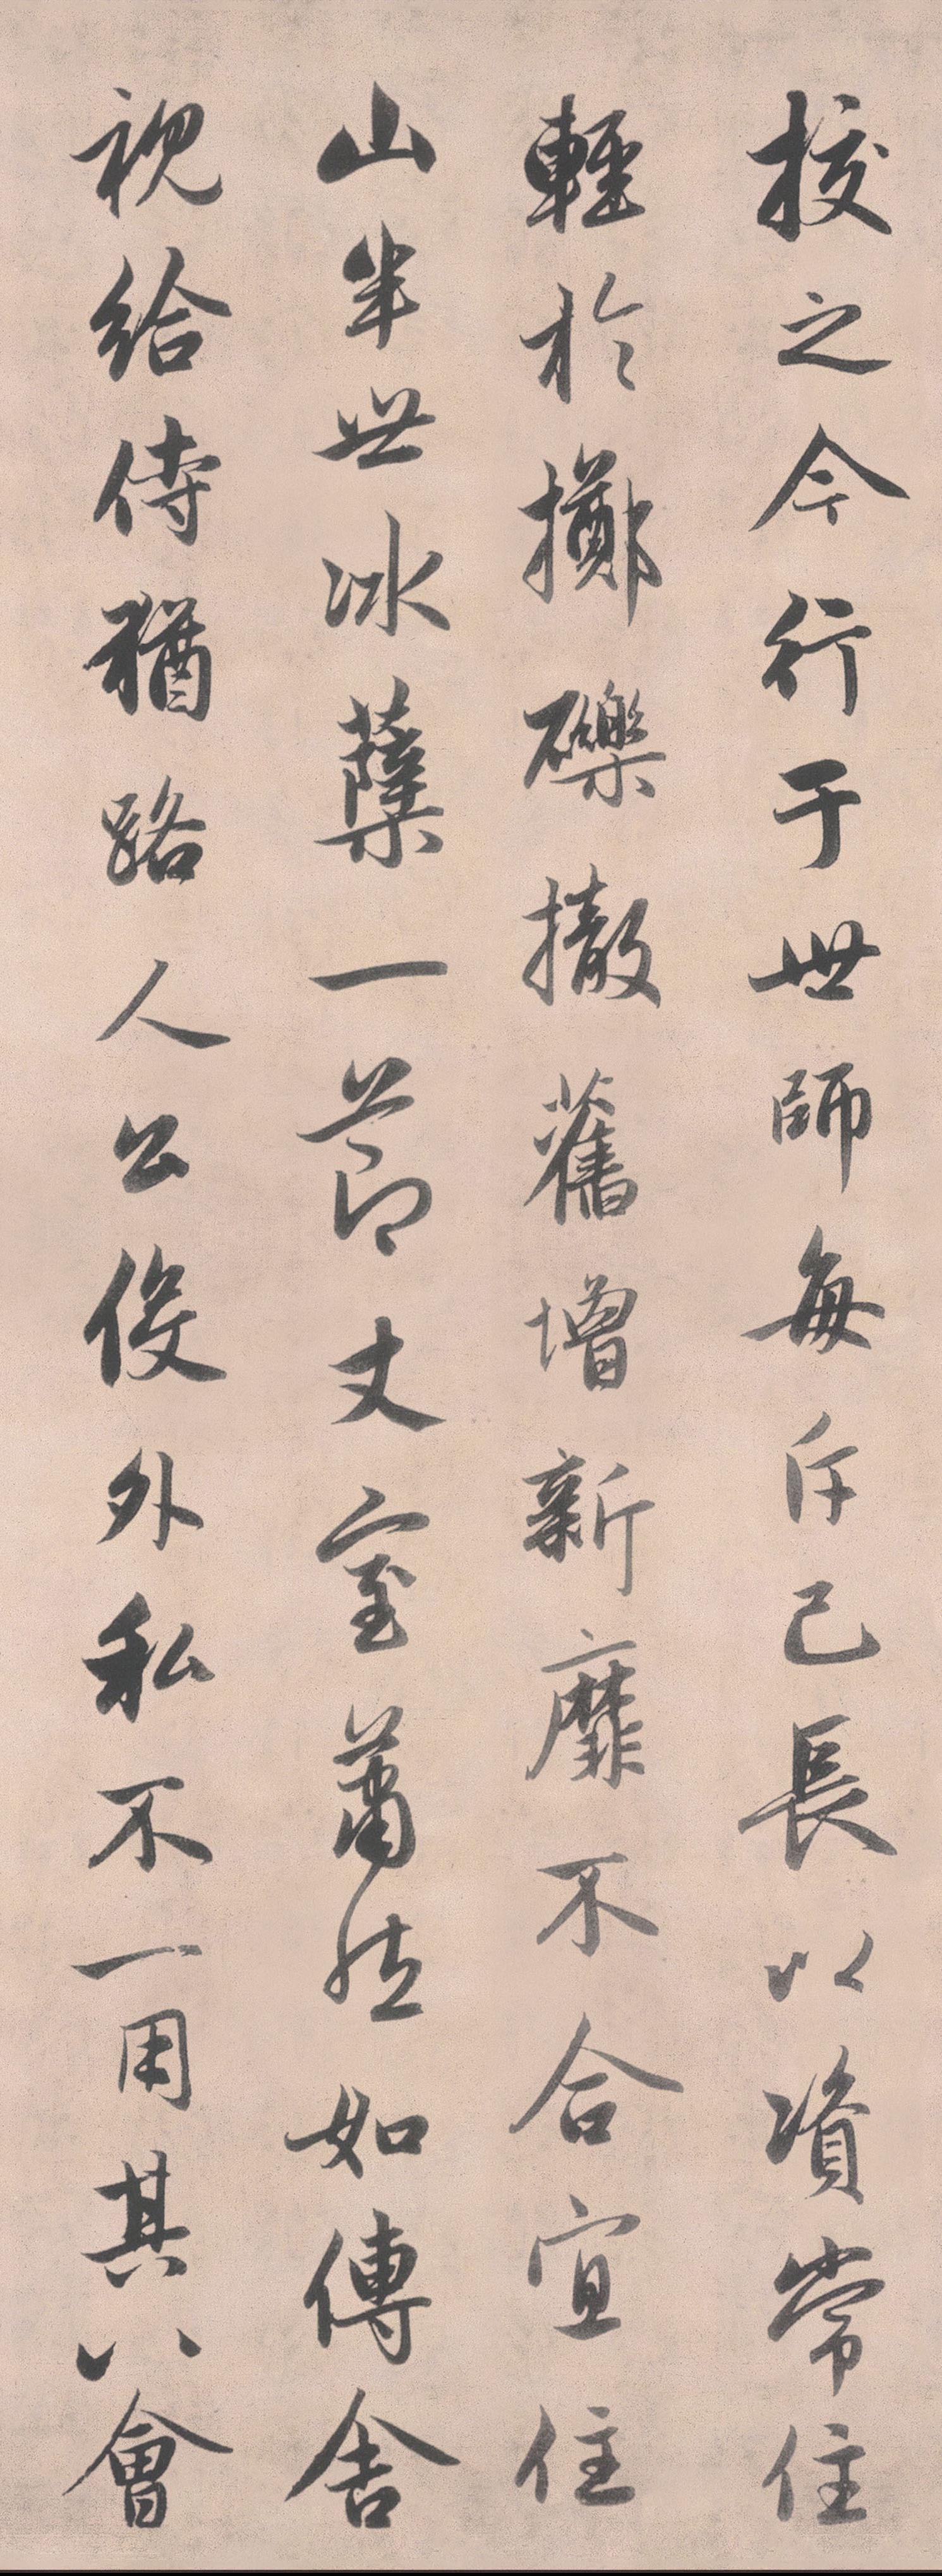 挍之今行于世師每斥己長以資常住
輕於擲礫撤舊增新靡不合宜住
山半世冰蘖一節丈室蕭然如傳舍
視給侍猶路人公役外私不一用其以會